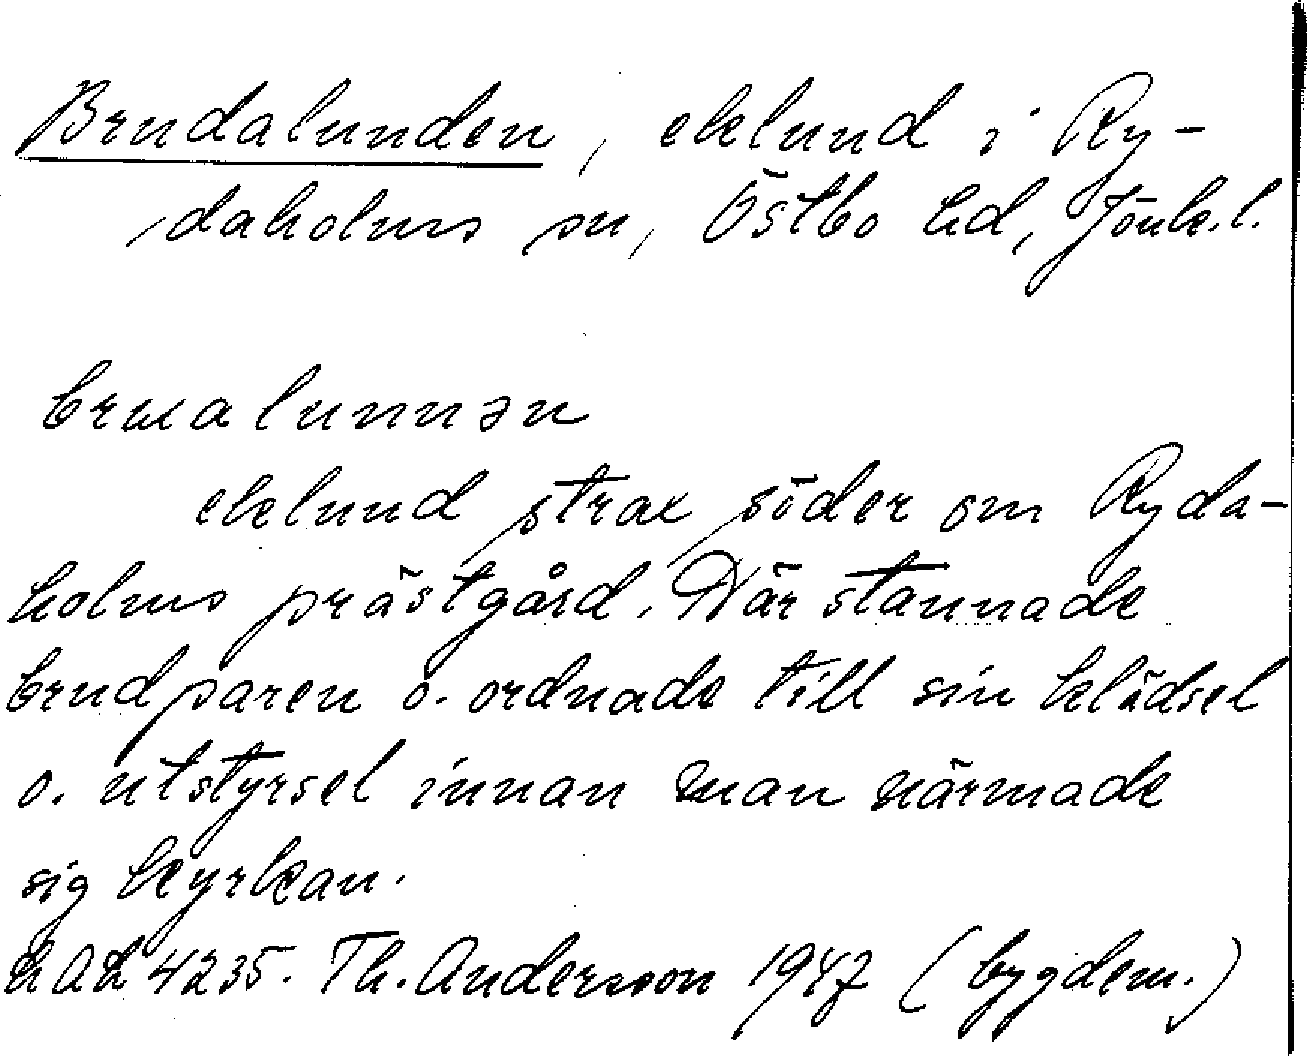 Brudalunden, eklund i Ry-
daholms sn, Östbo hd, Jönk.l.
brualunnən
eklund strax söder om Ryda-
holms prästgård. Där stannade
brudparen o. ordnade till sin klädsel
o. utstyrsel innan man närmade
sig kyrkan.
4235. Th. Andersson 1947 (bygdem.)